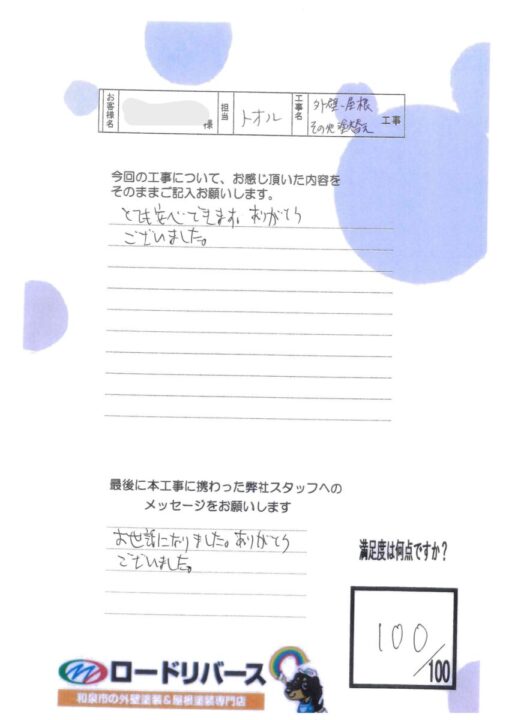 お客様名 様 担当 トオル 工事名 外壁・屋根
その他塗替え 工事
今回の工事について、お感じ頂いた内容を
そのままご記入お願いします。
とても安心できます。ありがとう
ございました。
最後に本工事に携わった弊社スタッフへの
メッセージをお願いします
お世話になりました。ありがとう
ございました。
満足度は何点ですか?
100
/100
ロードリバース
和泉市の外壁塗装&屋根塗装専門店